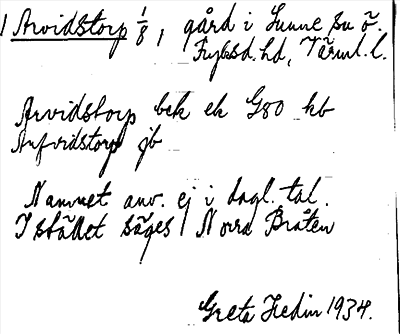 1 Arvidstorp 1/8, gård i Sunne sn ö.
Fryksd. hd, Värml. l.
Arvidstorp bek ek G50 kb
Arfvidstorp jb
Namnet anv. ej i dagl. tal.
I stället säges Norra Bråten
Greta Hedin 1934.